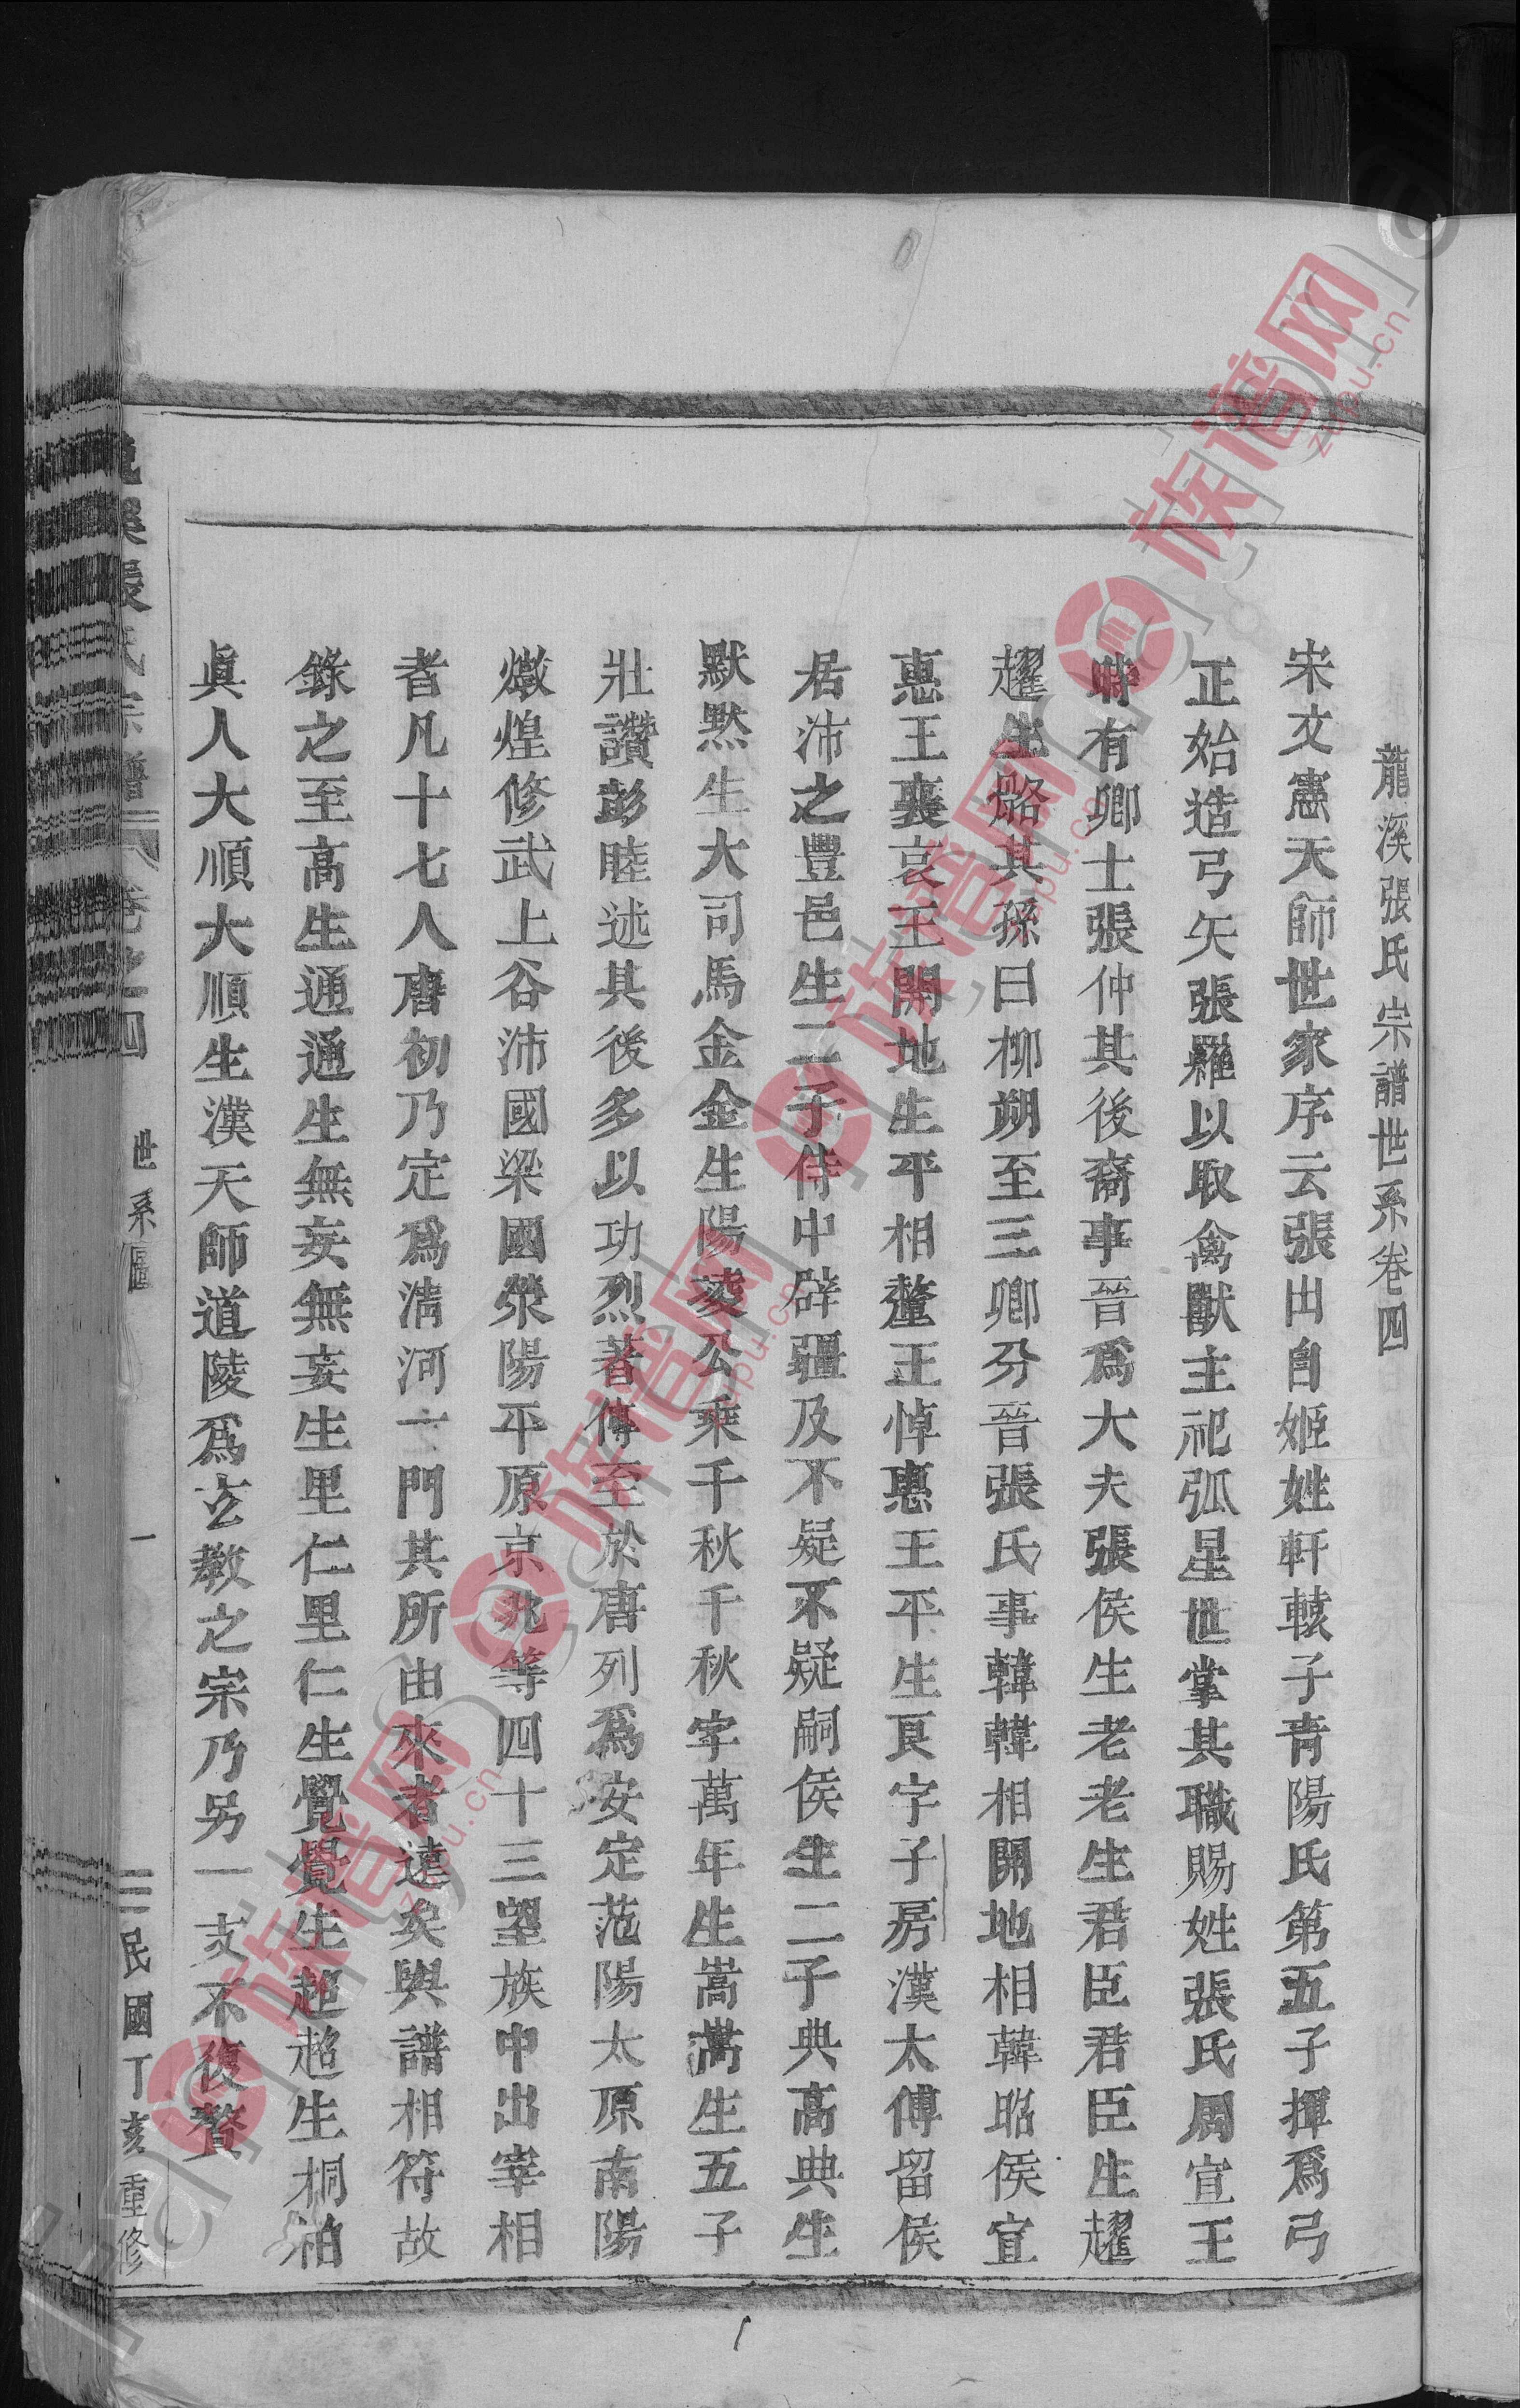 龍溪張氏宗譜世系卷四
宋文憲天師世家序云張出自姬姓軒轅子青陽氏第五子揮爲弓
正始造弓矢張羅以取禽獸主祀弧星世掌其職賜姓張氏周宣王
時有卿士張仲其後裔事晉爲大夫張侯生老老生君臣君臣生趯
趯生骼其孫曰柳朔至三卿分晉張氏事韓韓相開地相韓昭侯宣
惠王襄哀王開地生平相釐王悼惠王平生良字子房漢太傅留侯
居沛之豐邑生二子侍中辟疆及不疑不疑嗣侯生二子典高典生
默默生大司馬金金生陽陵公乘千秋千秋字萬年生嵩嵩生五子
壯讚彭睦述其後多以功烈著傳至於唐列爲安定范陽太原南陽
燉煌修武上谷沛國梁國滎陽平原京兆等四十三望族中出宰相
者凡十七人唐初乃定爲淸河一門其所由來者遠矣與譜相符故
錄之至高生通通生無妄無妄生里仁里仁生覺覺生趙趙生桐柏
眞人大順大順生漢天師道陵爲玄教之宗乃另一支不復贅
龍溪張氏宗譜 卷之四 世系圖 一 民國丁亥重修
1
族譜网 zupu.cn